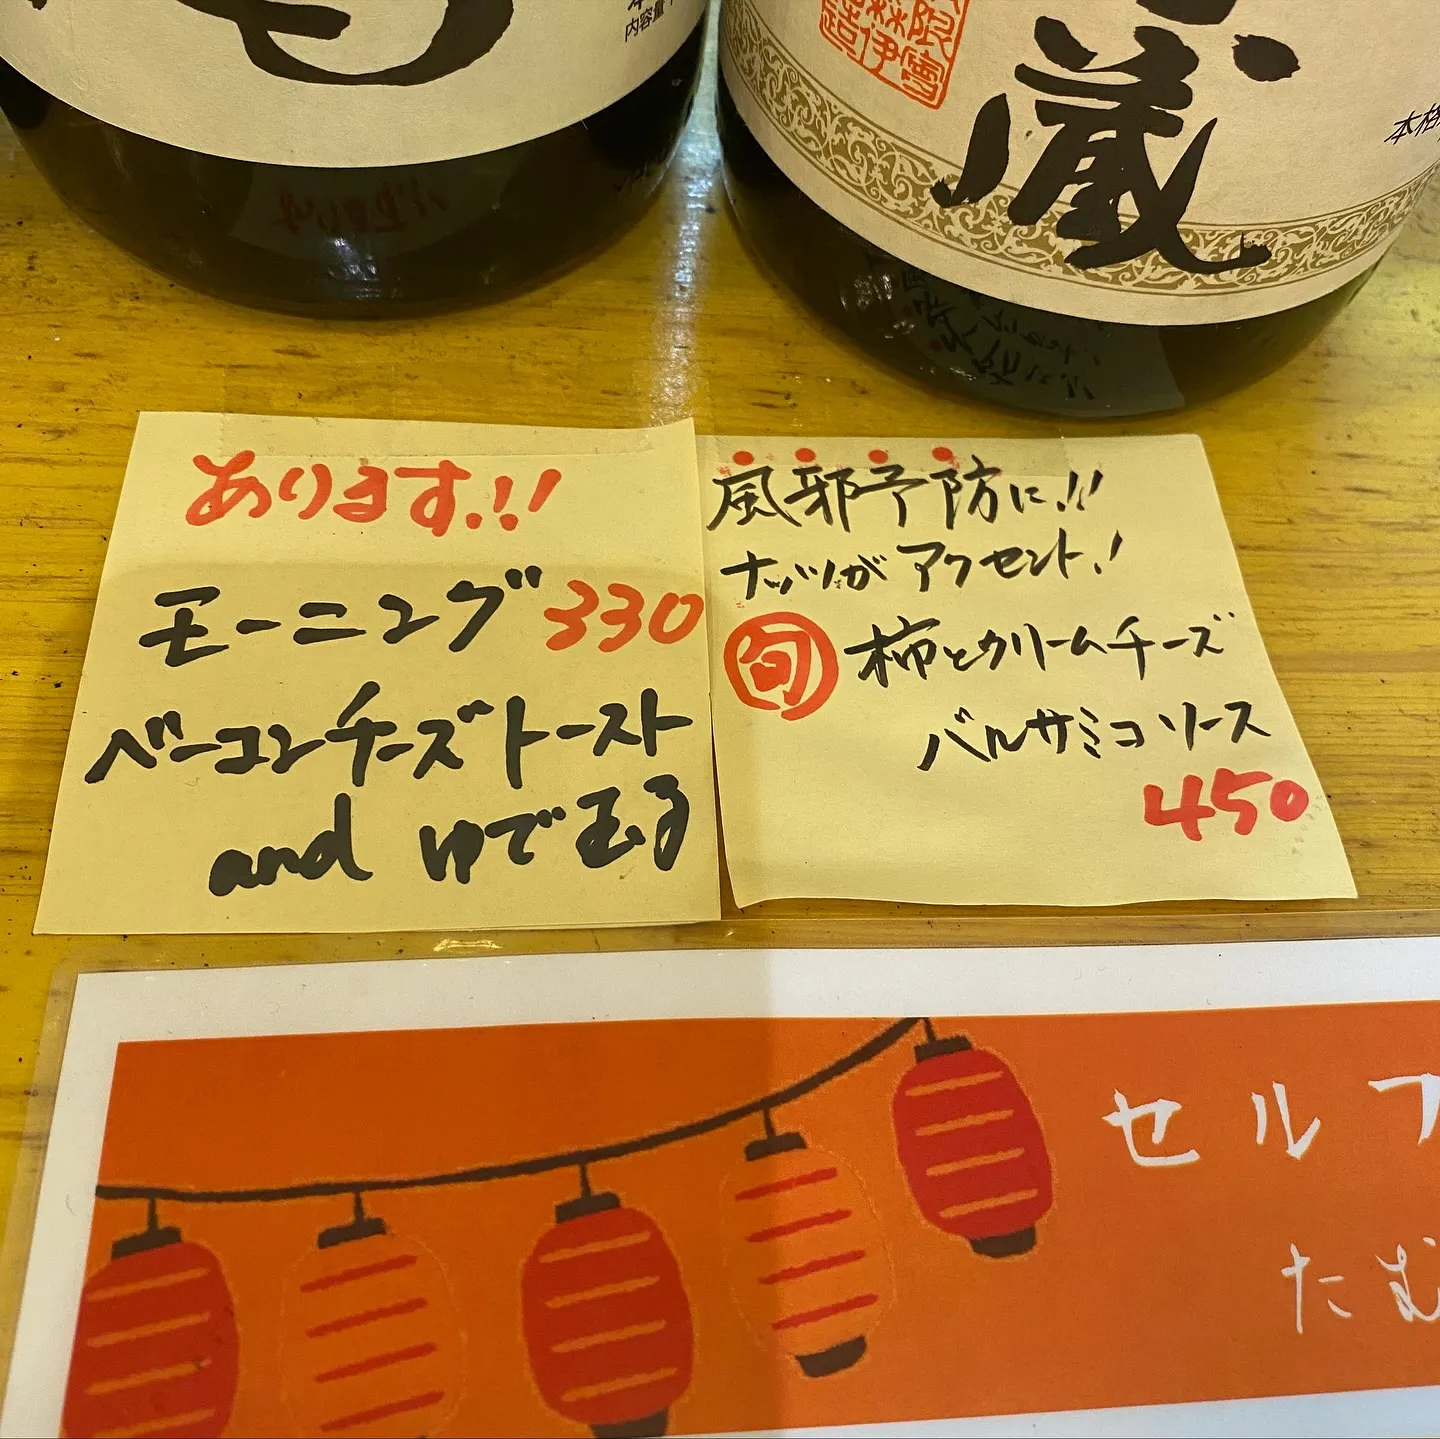 内容量
限
雪
森
伊
造
蔵
本格
あります!!
モーニング330
ベーコンチーズトースト
and ゆで玉子
風邪予防に!!
ナッツがアクセント!
旬 柿とクリームチーズ
バルサミコソース
450
セルフ
たむ